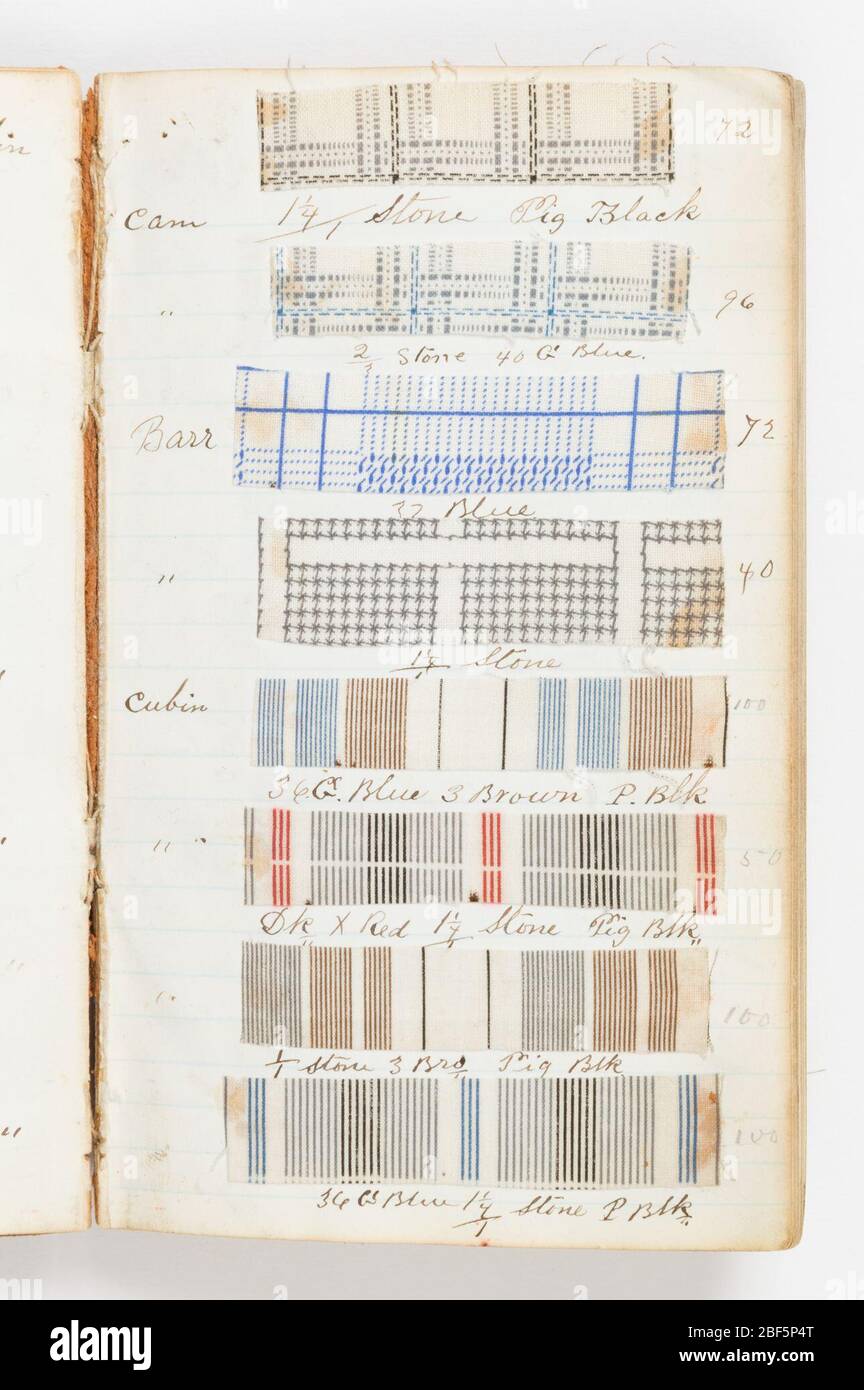 72
Cam 1 1/4 / 1 Stone Pig Black
" 96
2/1 Stone 40 G's Blue.
Barr 72
32 Blue
" 40
1/4 Stone
Cubin 100
36 G's. Blue 3 Brown P. Blk
" " 50
Dk X Red 1 1/4 Stone Pig Blk
" 100
1/1 Stone 3 Bro Pig Blk
100
36 G's Blue 1 1/4 / 1 Stone P Blk
alamy
Image ID: 2BF5P4T
www.alamy.com